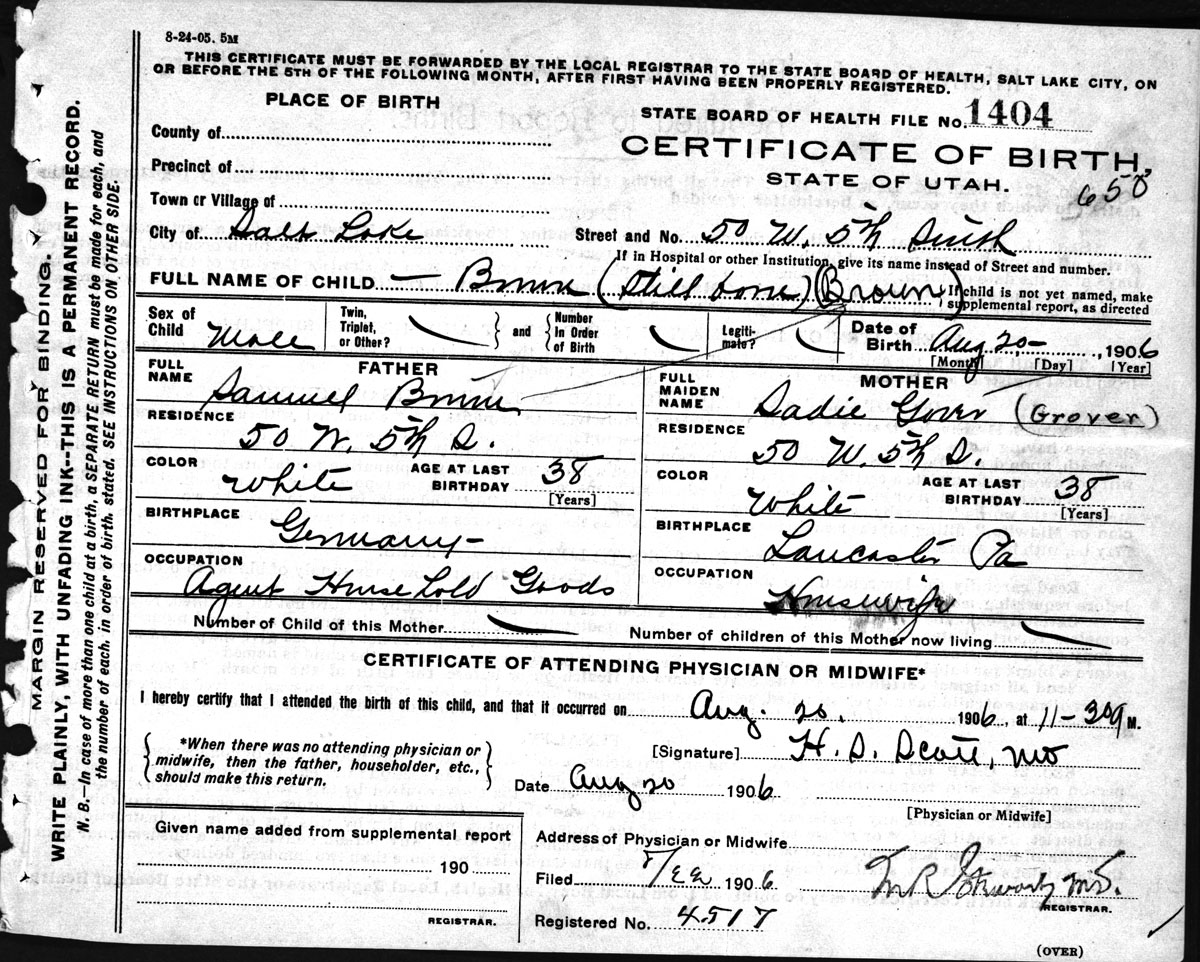 8-24-05. 5M
THIS CERTIFICATE MUST BE FORWARDED BY THE LOCAL REGISTRAR TO THE STATE BOARD OF HEALTH, SALT LAKE CITY, ON
OR BEFORE THE 5TH OF THE FOLLOWING MONTH, AFTER FIRST HAVING BEEN PROPERLY REGISTERED.
PLACE OF BIRTH
STATE BOARD OF HEALTH FILE No. 1404
County of
CERTIFICATE OF BIRTH
Precinct of
STATE OF UTAH.
658
Town or Village of
City of Salt Lake Street and No. 50 W. 5th South
If in Hospital or other Institution, give its name instead of Street and number.
FULL NAME OF CHILD — Brown (Still born) (Brown) If child is not yet named, make
supplemental report, as directed
Sex of Child Male
Twin, Triplet, or Other?
and
Number In Order of Birth
Legiti-mate?
Date of Birth Aug 20 — , 1906
[Month] [Day] [Year]
FATHER
FULL NAME Samuel Brown
RESIDENCE 50 W. 5th S.
COLOR White AGE AT LAST BIRTHDAY 38
[Years]
BIRTHPLACE Germany
OCCUPATION Agent House hold Goods
MOTHER
FULL MAIDEN NAME Sadie Grover (Grover)
RESIDENCE 50 W. 5th S.
COLOR White AGE AT LAST BIRTHDAY 38
[Years]
BIRTHPLACE Lancaster Pa
OCCUPATION Housewife
Number of Child of this Mother
Number of children of this Mother now living
CERTIFICATE OF ATTENDING PHYSICIAN OR MIDWIFE*
I hereby certify that I attended the birth of this child, and that it occurred on Aug. 20. 1906, at 11-30 M.
*When there was no attending physician or
midwife, then the father, householder, etc.,
should make this return.
[Signature] H. S. Scott, MD
Date Aug 20 1906
[Physician or Midwife]
Given name added from supplemental report
190
REGISTRAR.
Address of Physician or Midwife
Filed 8/22 1906
REGISTRAR.
Registered No. 4517
(OVER)
MARGIN RESERVED FOR BINDING.
WRITE PLAINLY, WITH UNFADING INK---THIS IS A PERMANENT RECORD.
N. B.—In case of more than one child at a birth, a SEPARATE RETURN must be made for each, and
the number of each, in order of birth, stated. SEE INSTRUCTIONS ON OTHER SIDE.